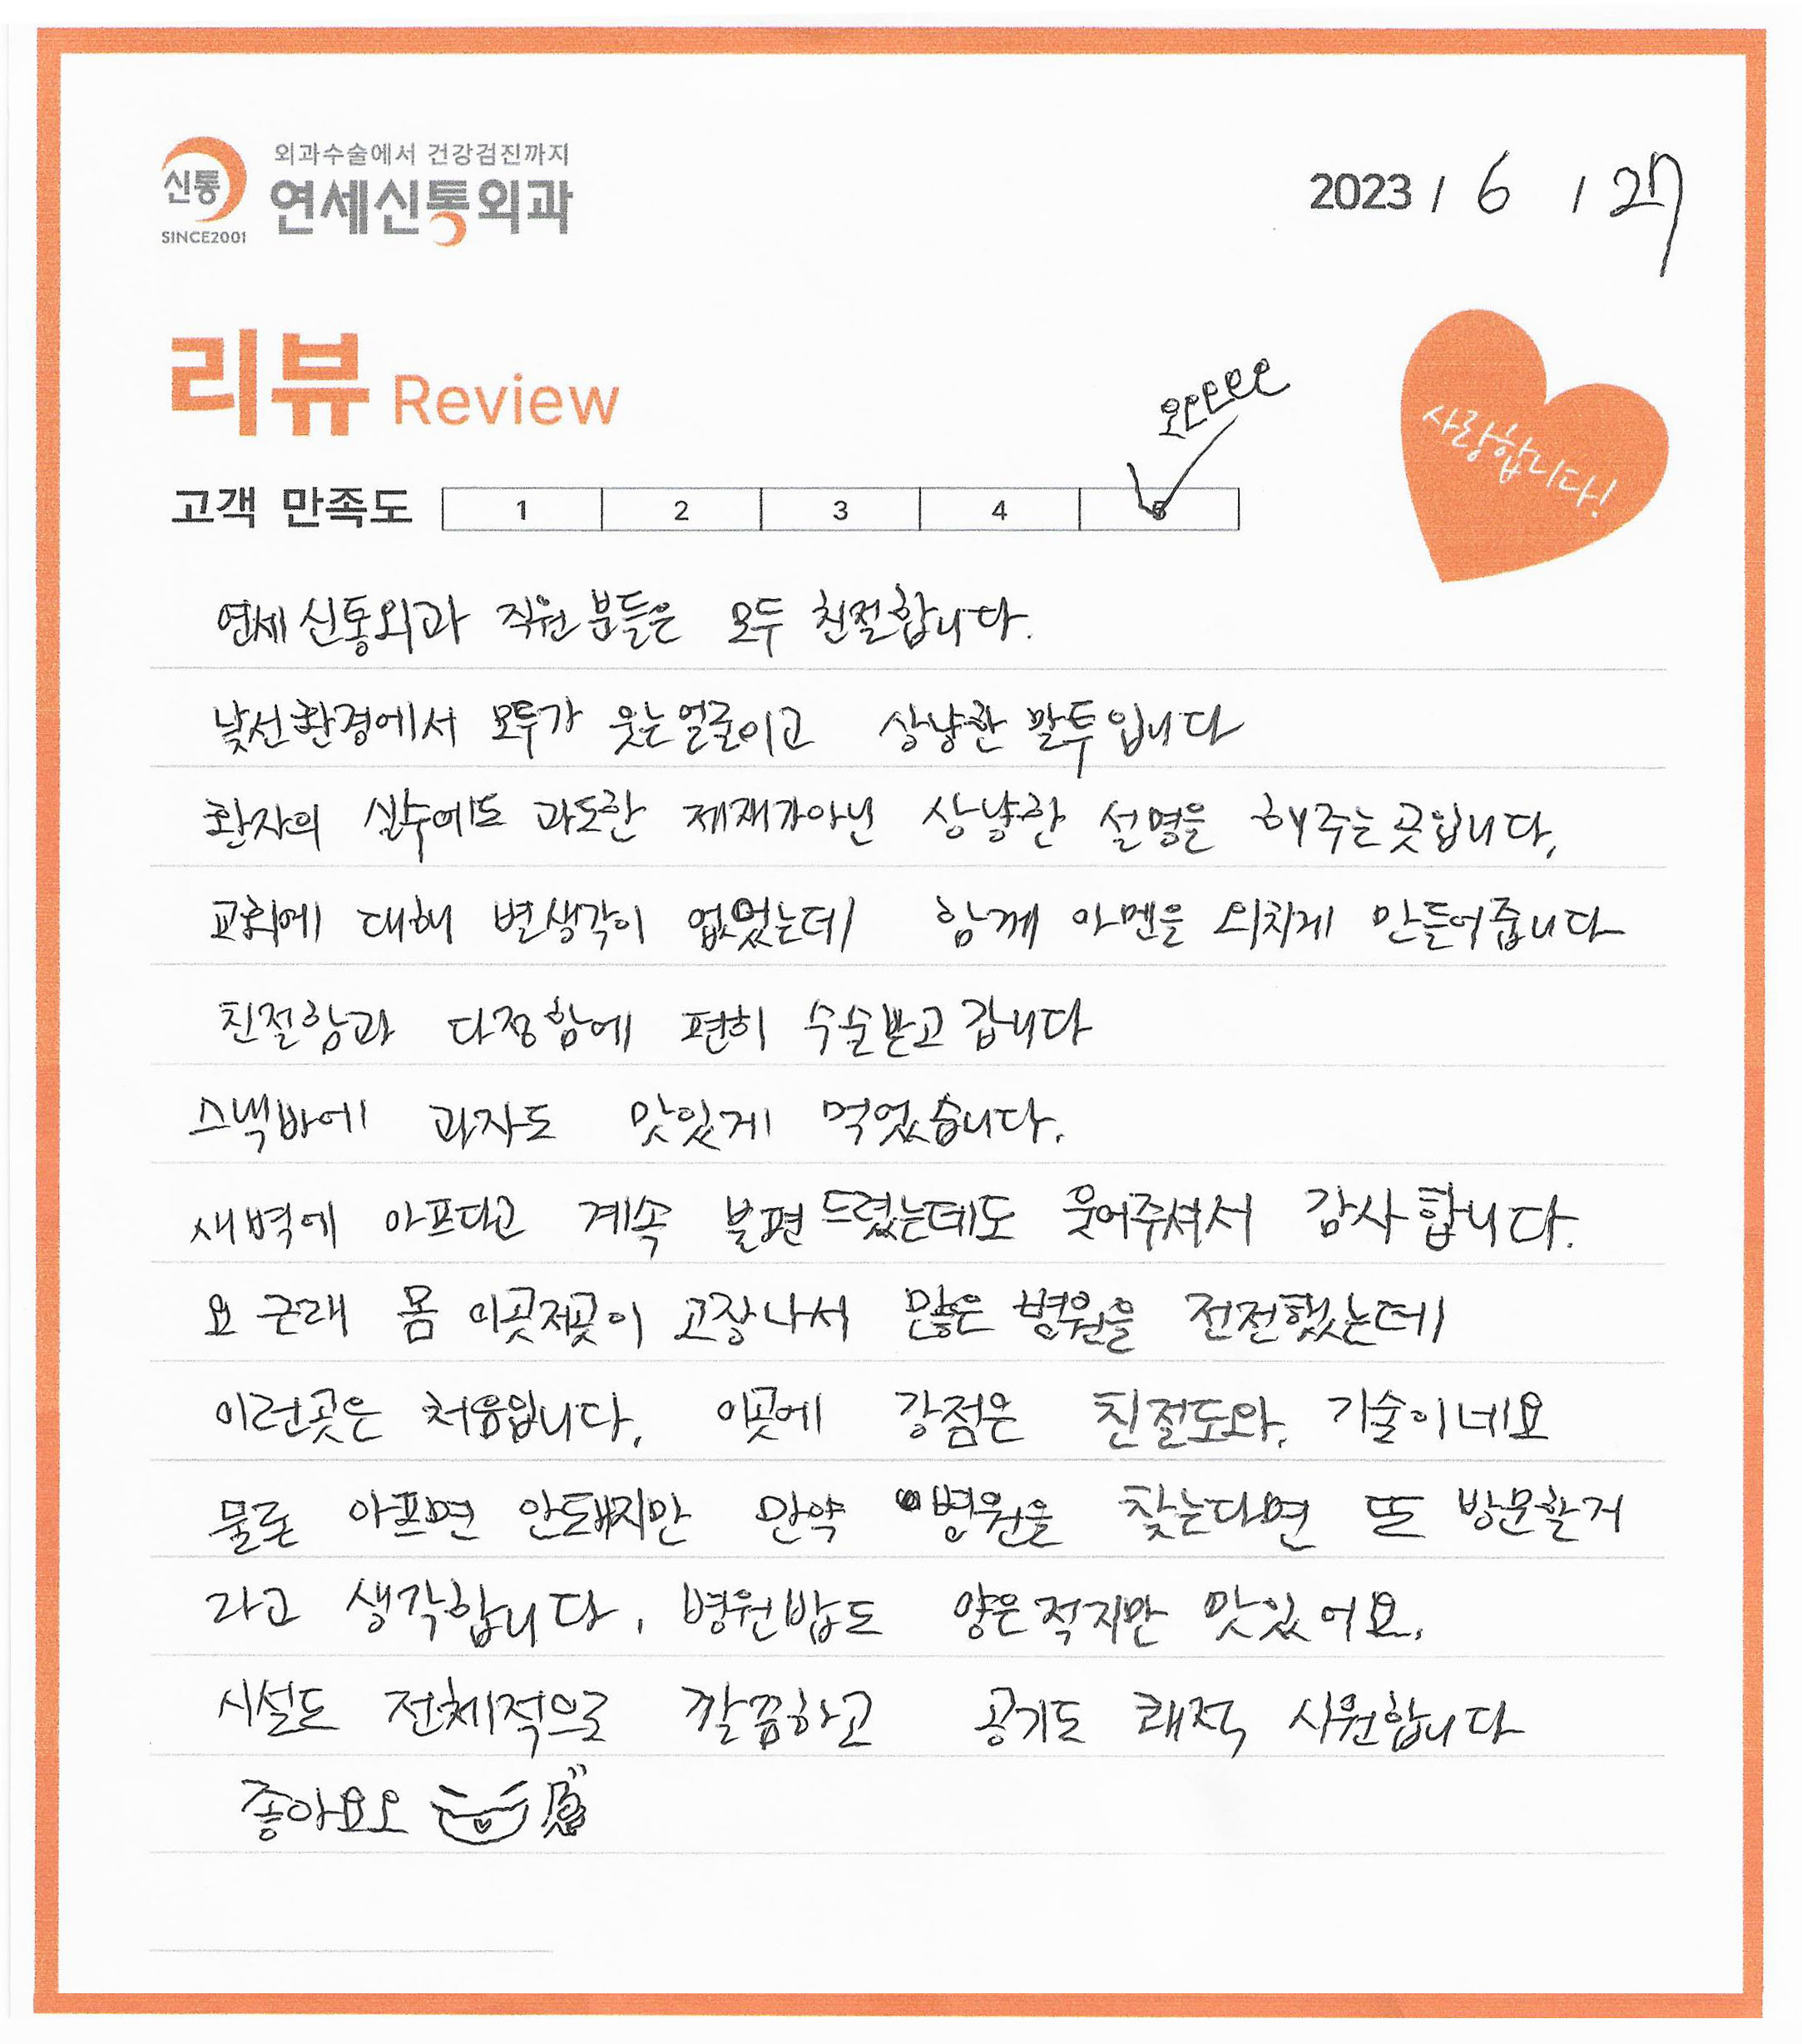 외과수술에서 건강검진까지
신통
연세신통외과
SINCE2001
2023 / 6 / 27
리뷰 Review
사랑합니다!
고객 만족도 1 2 3 4 5
연세신통외과 직원분들은 모두 친절합니다.
낯선환경에서 모두가 웃는얼굴이고 상냥한 말투입니다
환자의 실수에도 과도한 제재가아닌 상냥한 설명을 해주는곳입니다,
교회에 대해 별생각이 없었는데 함께 아멘을 외치게 만들어줍니다
친절함과 다정함에 편히 수술받고 갑니다
스낵바에 과자도 맛있게 먹었습니다.
새벽에 아프다고 계속 불편드렸는데도 웃어주셔서 감사합니다.
요 근래 몸 이곳저곳이 고장나서 많은 병원을 전전했는데
이런곳은 처음입니다, 이곳에 강점은 친절도와, 기술이네요
물론 아프면 안돼지만 만약 병원을 찾는다면 또 방문할거
라고 생각합니다, 병원밥도 양은적지만 맛있어요,
시설도 전체적으로 깔끔하고 공기도 쾌적 시원합니다
좋아요오